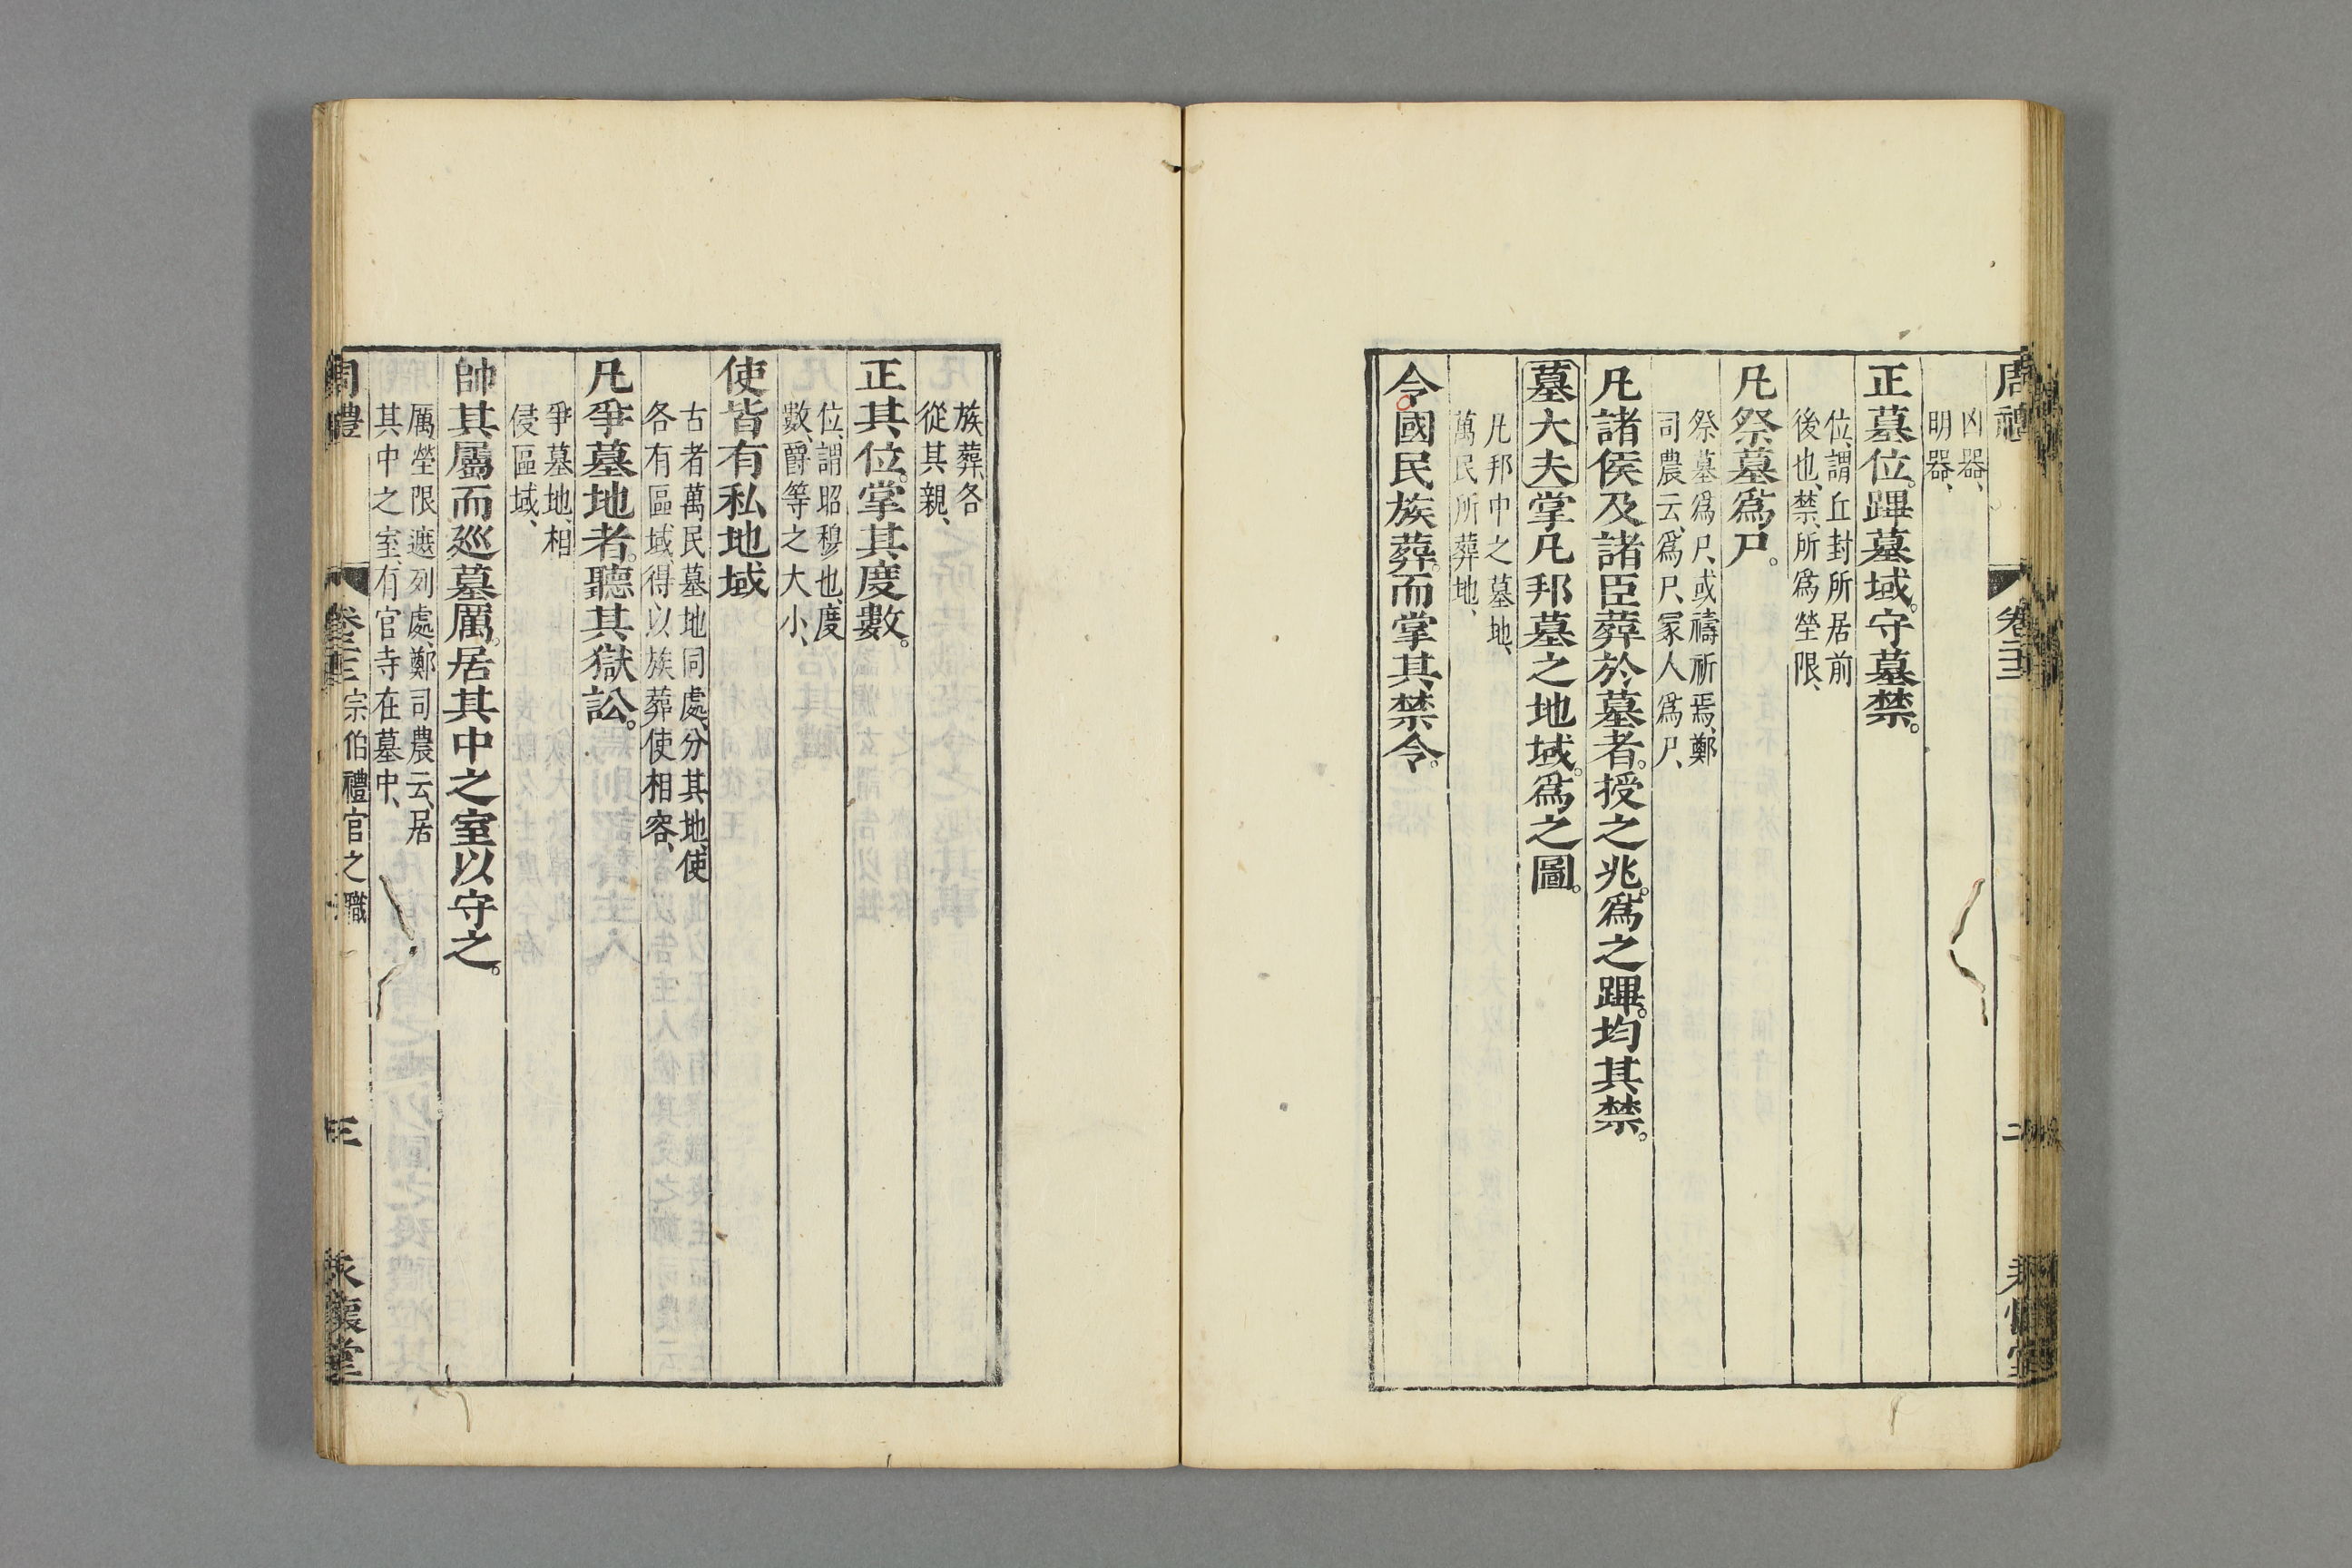 周禮 卷二十二 二 永懷堂
凶器、
明器、
正墓位。蹕墓域。守墓禁。
位、謂丘封所居前
後也、禁、所爲塋限、
凡祭墓爲尸。
祭墓爲尸、或禱祈焉、鄭
司農云、爲尸、冢人爲尸、
凡諸侯及諸臣葬於墓者。授之兆。爲之蹕。均其禁。
墓大夫掌凡邦墓之地域。爲之圖。
凡邦中之墓地、
萬民所葬地、
令國民族葬。而掌其禁令。
族葬、各
從其親、
正其位。掌其度數。
位、謂昭穆也、度
數、爵等之大小、
使皆有私地域
古者萬民墓地同處、分其地、使
各有區域、得以族葬使相容、
凡爭墓地者。聽其獄訟。
爭墓地、相
侵區域、
帥其屬而巡墓厲。居其中之室以守之。
厲塋限遮列處、鄭司農云、居
其中之室、有官寺在墓中、
周禮 宗伯禮官之職 三 永懷堂